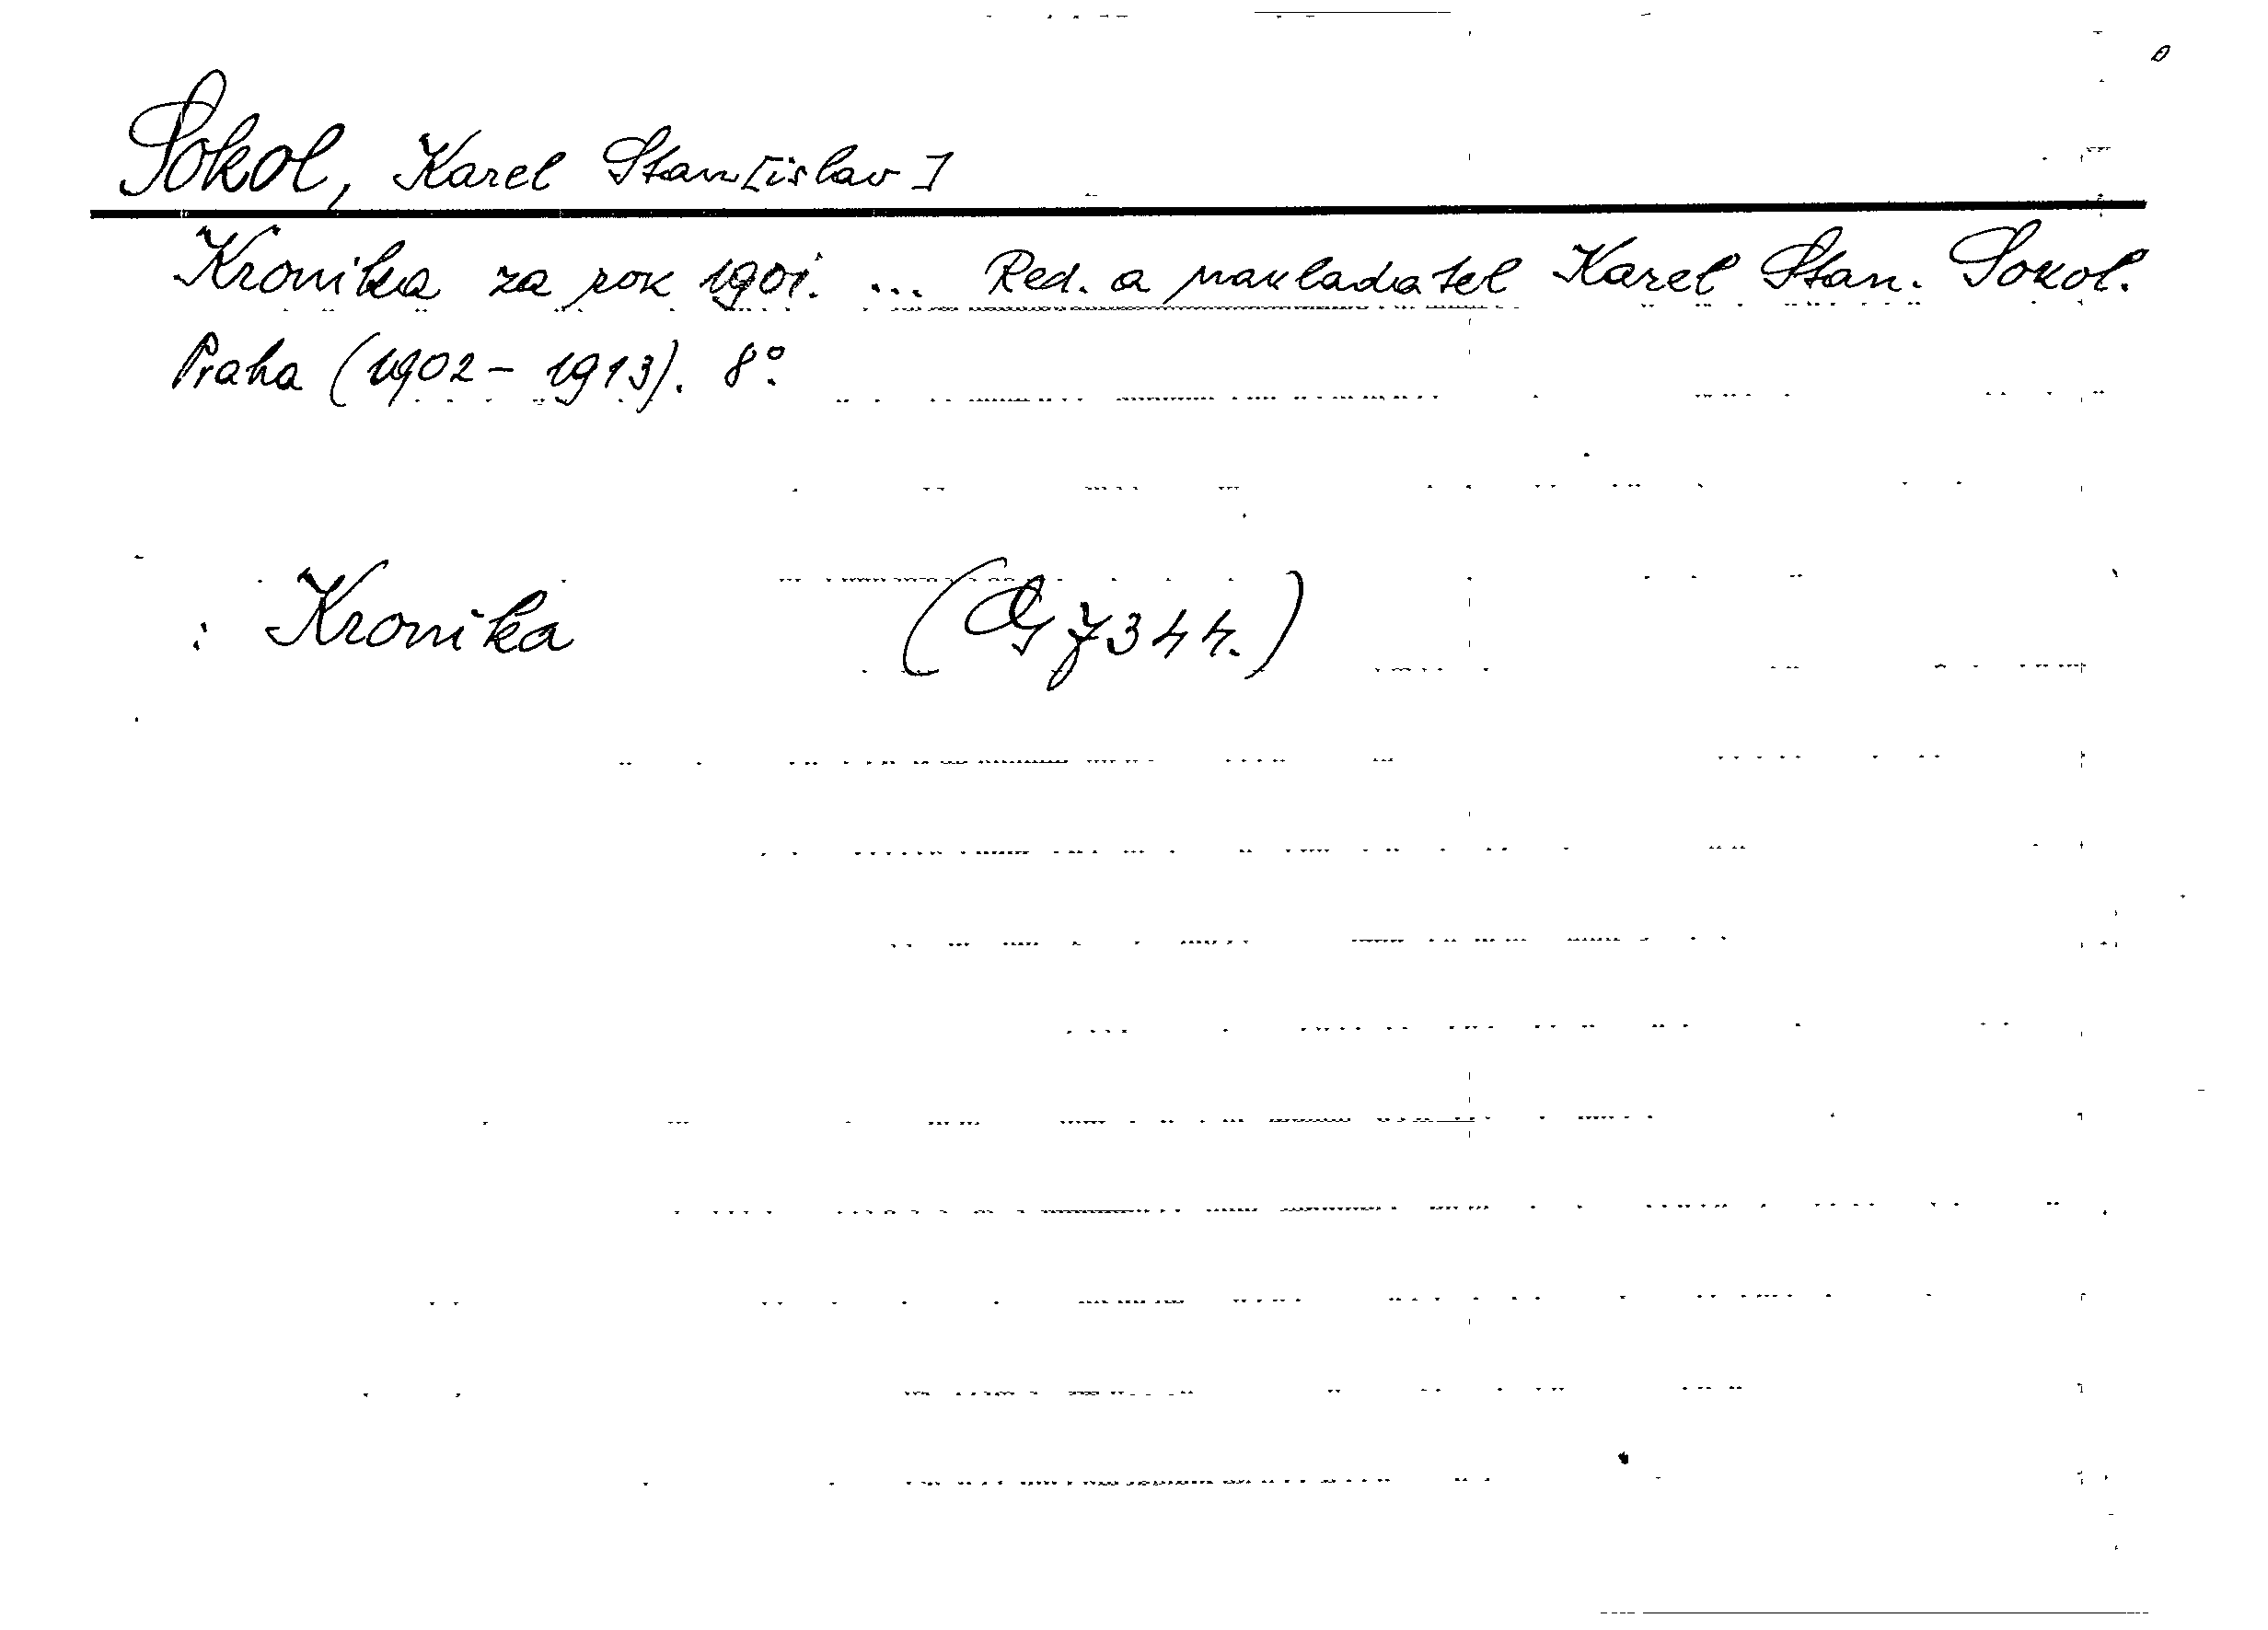 Sokol, Karel Stan[islav]
Kronika za rok 1901. ... Red. a nakladatel Karel Stan. Sokol.
Praha (1902-1913). 8°.
: Kronika (G 7344.)